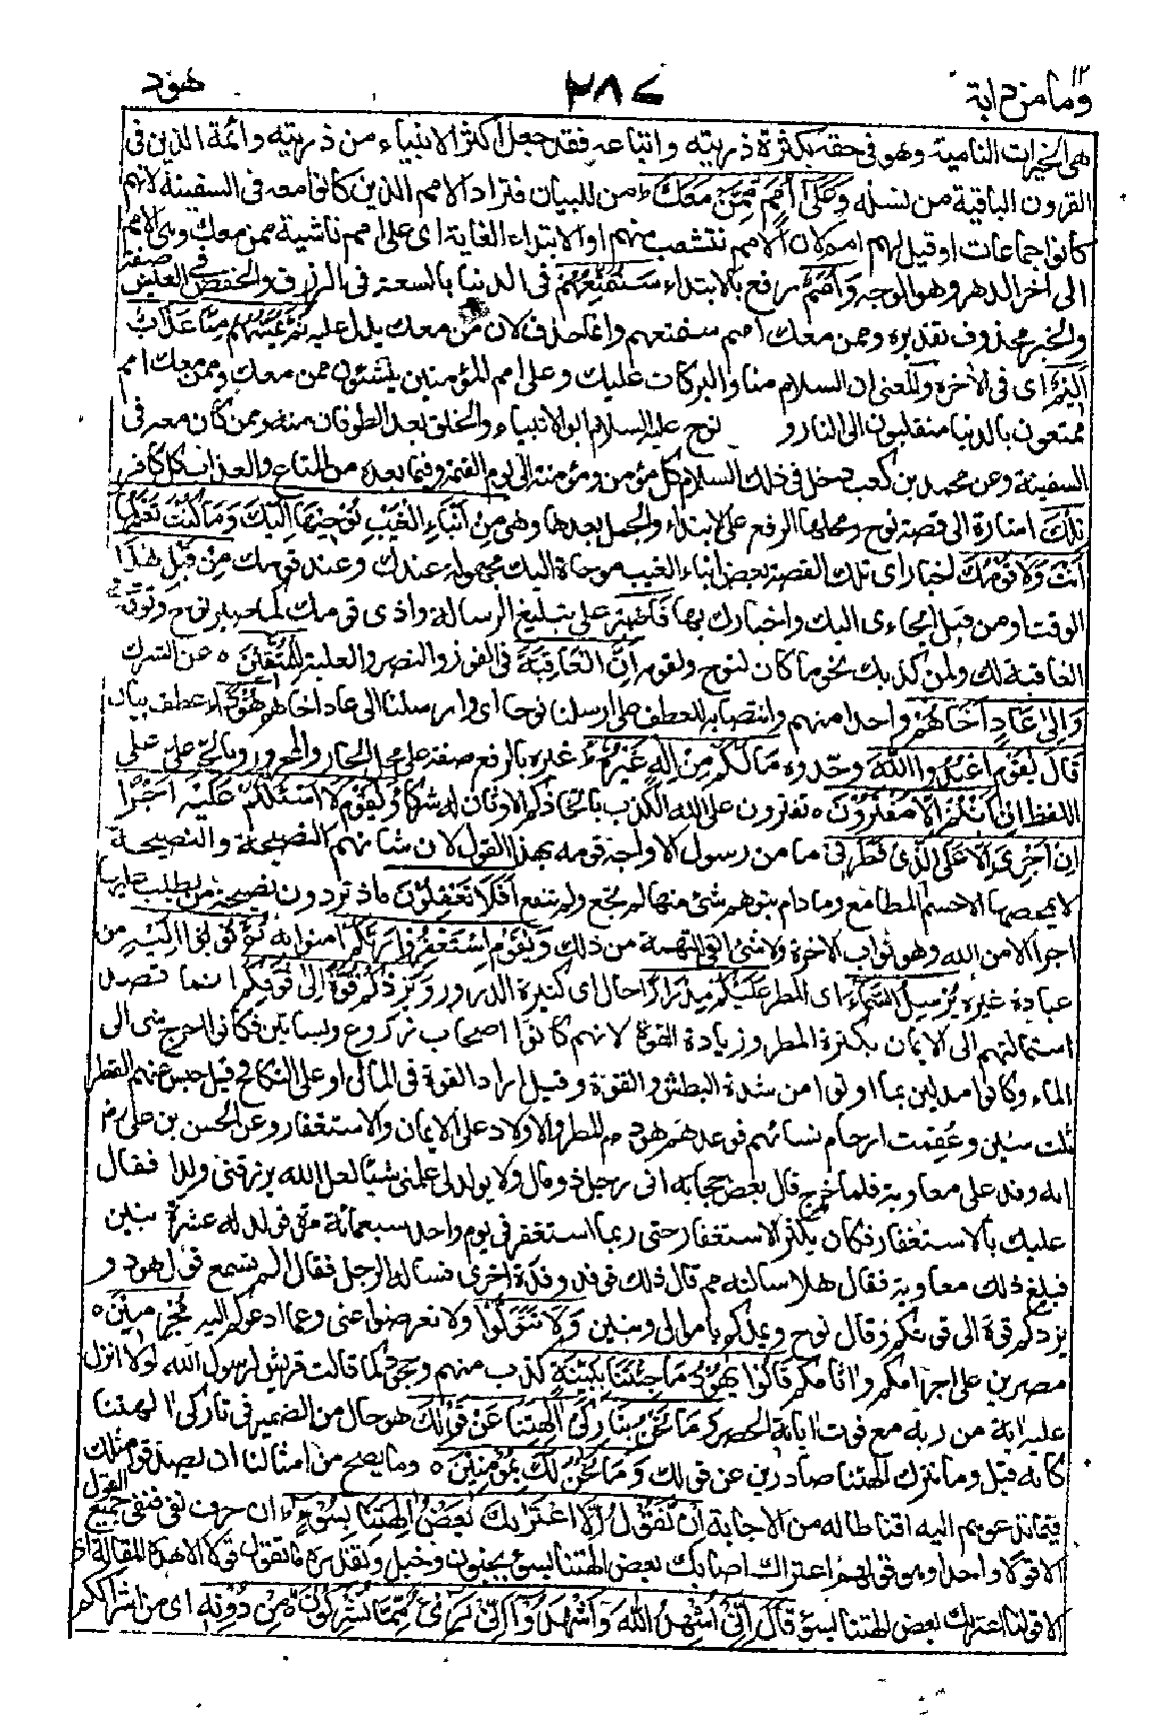 ١٢
وما من دابة
٢٨٧
هود
هى الخيرات النامية وهو فى حقه بكثرة ذريته واتباعه فقد جعل اكثر الانبياء من ذريته وائمة الدين فى
القرون الباقية من نسله وَعَلٰى اُمَمٍ مِّمَّنْ مَّعَكَ من للبيان فتراد الامم الذين كانوا معه فى السفينة لانهم
كانوا جماعات او قيل لهم امم لان الامم تتشعب منهم او الابتداء الغاية اى على امم ناشية ممن معك وهى الامم
الى اخر الدهر وهو الوجه وَاُمَمٌ رفع بالابتداء سَنُمَتِّعُهُمْ فى الدنيا بالسعة فى الرزق والخفض فى العيش صفة
والخبر محذوف تقديره وممن معك امم سنمتعهم وانما حذف لان ممن معك يدل عليه ثُمَّ يَمَسُّهُمْ مِّنَّا عَذَابٌ
اَلِيْمٌ اى فى الاخرة والمعنى ان السلام منا والبركات عليك وعلى امم المؤمنين ينشئون ممن معك وممن معك امم
ممتعون بالدنيا منقلبون الى النار و نوح عليه السلام ابو الانبياء والخلق بعد الطوفان منه وممن كان معه فى
السفينة وعن محمد بن كعب دخل فى ذلك السلام كل مؤمن ومؤمنة الى يوم القيمة وفيما بعده من المتاع والعذاب كل كافر
تِلْكَ اشارة الى قصة نوح ومحلها الرفع على الابتداء والجمل بعدها وهى مِنْ اَنْبَاءِ الْغَيْبِ نُوْحِيْهَا اِلَيْكَ وَمَا كُنْتَ تَعْلَمُهَا
اَنْتَ وَلَا قَوْمُكَ اخبار اى تلك القصة بعض انباء الغيب موحاة اليك مجهولة عندك وعند قومك مِنْ قَبْلِ هٰذَا
الوقت او من قبل ايحاءى اليك واخبارك بها فَاصْبِرْ على تبليغ الرسالة واذى قومك كما صبر نوح وتوقع فى
العاقبة لك ولمن كذبك نحو ما كان لنوح ولقومه اِنَّ الْعَاقِبَةَ فى الفوز والنصر والغلبة لِلْمُتَّقِيْنَ ه عن الشرك
وَاِلٰى عَادٍ اَخَاهُمْ واحدا منهم وانتصابه للعطف على ارسلنا نوحا اى وارسلنا الى عاد اخاهم هُوْدًا عطف بيان
قَالَ يٰقَوْمِ اعْبُدُوا اللّٰهَ وحدوه مَا لَكُمْ مِّنْ اِلٰهٍ غَيْرُهٗ غيره بالرفع صفة على محل الجار والمجرور وبالجر على على
اللفظ اِنْ اَنْتُمْ اِلَّا مُفْتَرُوْنَ ه تفترون على الله الكذب باتخاذكم الاوثان له شركاء يٰقَوْمِ لَا اَسْئَلُكُمْ عَلَيْهِ اَجْرًا
اِنْ اَجْرِىَ اِلَّا عَلَى الَّذِىْ فَطَرَنِىْ ما من رسول الا واجه قومه بهذا القول لان شانهم النصيحة والنصيحة
لا يمحصها الا حسم المطامع وما دام يتوهم شئ منها لم تنجع ولم تنفع اَفَلَا تَعْقِلُوْنَ اذ تردون نصيحة من لا يطلب عليها
اجرا الا من الله وهو ثواب الاخرة ولا شئ انفى التهمة من ذلك وَيٰقَوْمِ اسْتَغْفِرُوْا رَبَّكُمْ امنوا به ثُمَّ تُوْبُوْا اِلَيْهِ من
عبادة غيره يُرْسِلِ السَّمَاءَ اى المطر عَلَيْكُمْ مِّدْرَارًا حال اى كثيرة الدرور وَيَزِدْكُمْ قُوَّةً اِلٰى قُوَّتِكُمْ انما قصد
استمالتهم الى الايمان بكثرة المطر وزيادة القوة لانهم كانوا اصحاب زروع وبساتين فكانوا احوج شئ الى
الماء وكانوا مدلين بما اوتوا من شدة البطش والقوة وقيل اراد القوة فى المال او على النكاح وقيل حبس عنهم القطر
ثلث سنين وعقمت ارحام نسائهم فوعدهم هود ع م المطر والاولاد على الايمان والاستغفار وعن الحسن بن على رض
انه وفد على معاوية فلما خرج قال بعض حجابه انى رجل ذو مال ولا يولد لى علمنى شيئا لعل الله يرزقنى ولدا فقال
عليك بالاستغفار فكان يكثر الاستغفار حتى ربما استغفر فى يوم واحد سبعمائة مرة فولد له عشرة بنين
فبلغ ذلك معاوية فقال هلا سالته مم قال ذلك فوفد وفدة اخرى فساله الرجل فقال الم تسمع قول هود و
يزدكم قوة الى قوتكم وقال نوح ويمددكم باموال وبنين وَلَا تَتَوَلَّوْا ولا تعرضوا عنى وعما ادعوكم اليه مُجْرِمِيْنَ ه
مصرين على اجرامكم واثامكم قَالُوْا يٰهُوْدُ مَا جِئْتَنَا بِبَيِّنَةٍ كذب منهم وجحود كما قالت قريش لرسول الله لولا انزل
عليه اية من ربه مع فوت اياته الحصر وَمَا نَحْنُ بِتَارِكِىْ اٰلِهَتِنَا عَنْ قَوْلِكَ هو حال من الضمير فى تاركى الهتنا
كانه قيل وما نترك الهتنا صادرين عن قولك وَمَا نَحْنُ لَكَ بِمُؤْمِنِيْنَ ه وما يصح من امثالنا ان يصدقوا مثلك
فيما يدعوهم اليه اقناطا له من الاجابة اِنْ نَّقُوْلُ اِلَّا اعْتَرٰىكَ بَعْضُ اٰلِهَتِنَا بِسُوْءٍ ان حرف نفى فنفى جميع القول
الا قولا واحدا وهو قولهم اعتراك اصابك بعض الهتنا بسوء بجنون وخبل وتقديره ما نقول قولا الا هذه المقالة اى
الا قولنا اعتراك بعض الهتنا بسوء قَالَ اِنِّىْ اُشْهِدُ اللّٰهَ وَاشْهَدُوْا اَنِّىْ بَرِىْءٌ مِّمَّا تُشْرِكُوْنَ ه مِنْ دُوْنِهٖ اى من اشراككم